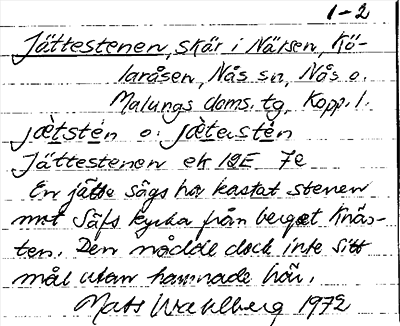 1-2
Jättestenen, skär i Närsen, Kö-
laråsen, Nås sn, Nås o.
Malungs doms. tg, Kopp. l.
jæ̀tstén o. jæ̀testén
Jättestenen ek 12E 7e
En jätte sägs ha kastat stenen
mot Säfs kyrka från berget Knäs-
ten. Den nådde dock inte sitt
mål utan hamnade här.
Mats Wahlberg 1972